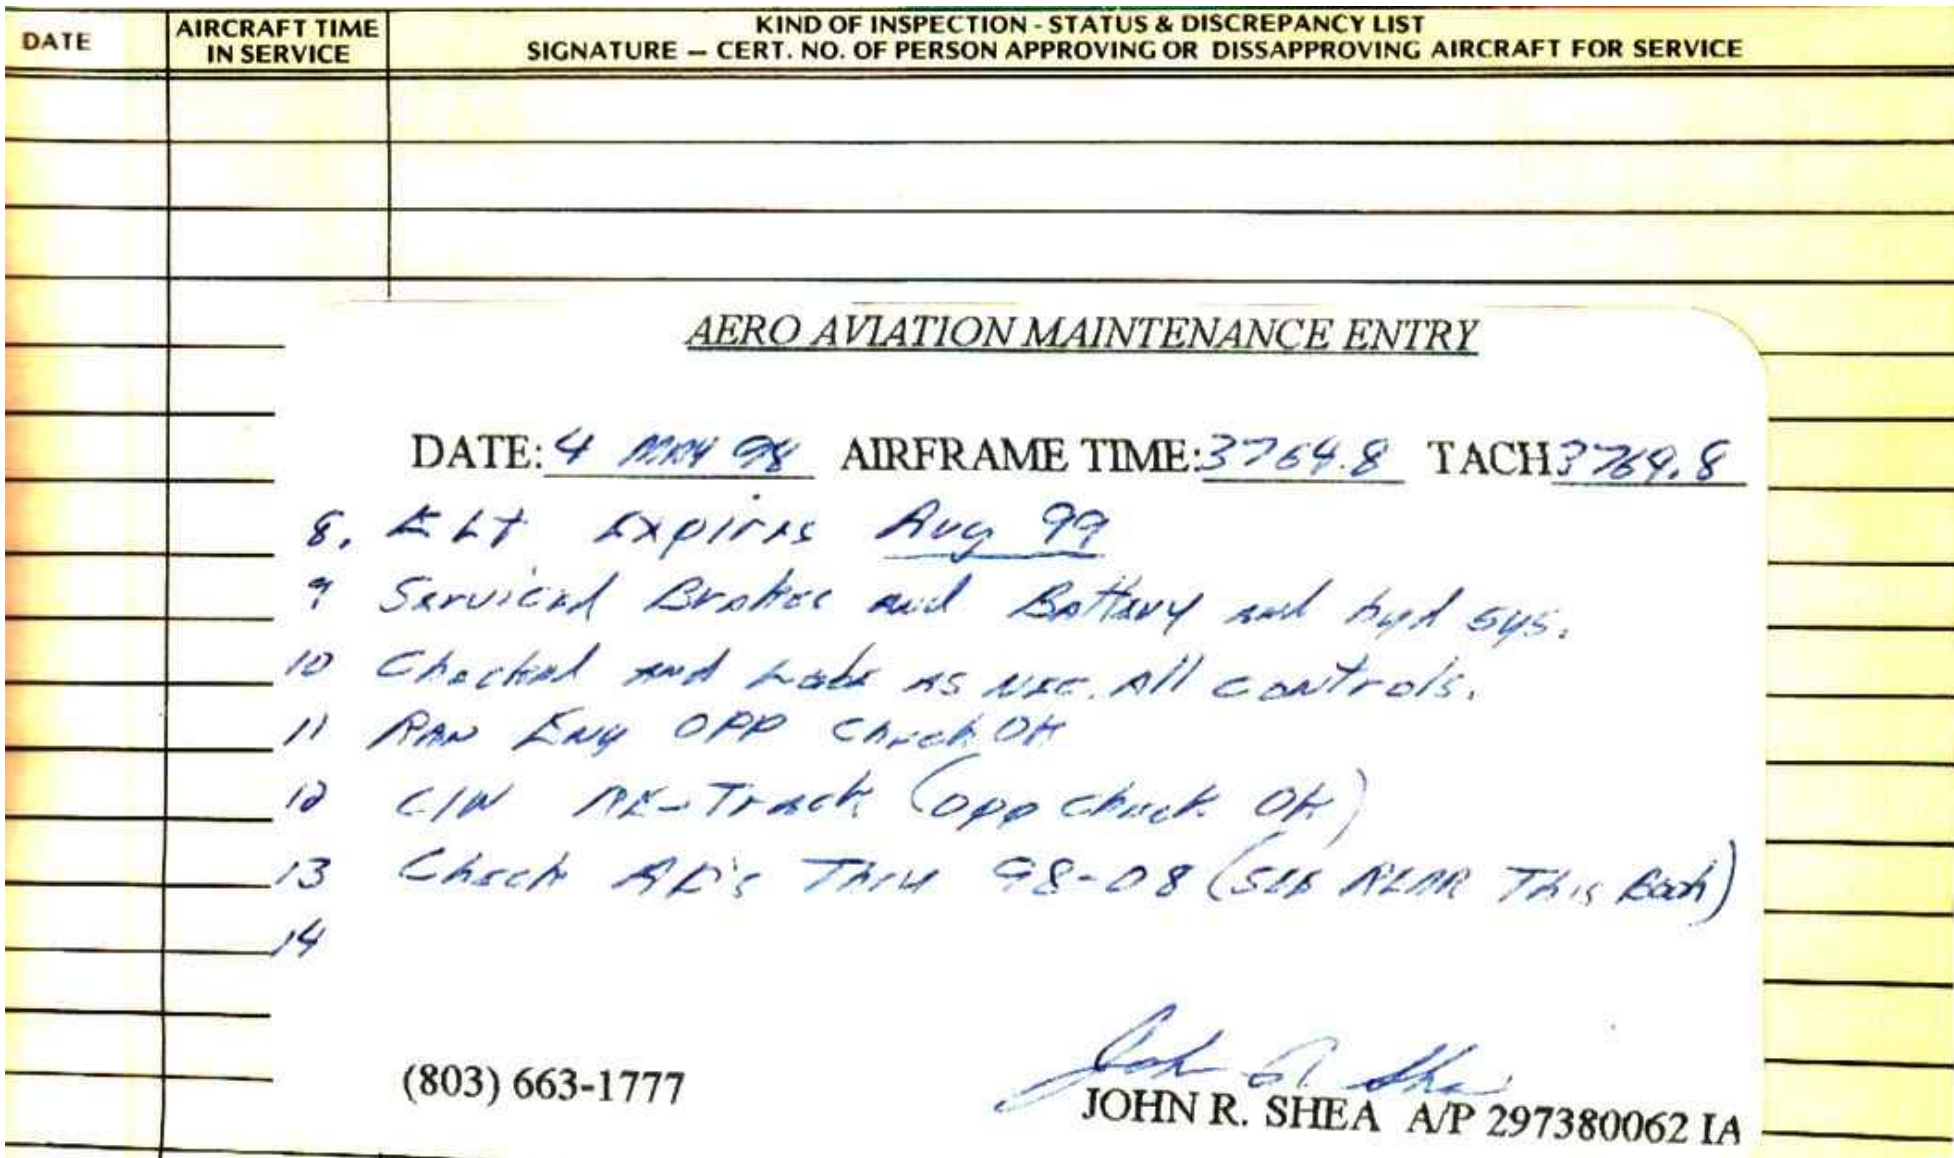 DATE
AIRCRAFT TIME
IN SERVICE
KIND OF INSPECTION - STATUS & DISCREPANCY LIST
SIGNATURE — CERT. NO. OF PERSON APPROVING OR DISSAPPROVING AIRCRAFT FOR SERVICE
AERO AVIATION MAINTENANCE ENTRY
DATE: 4 MAY 98 AIRFRAME TIME: 3764.8 TACH 3764.8
8. ELT Expires Aug 99
9 Serviced Brakes and Battery and hyd sys.
10 Checked and Lube as nec. All controls.
11 RAN Eng OPP Check OK
12 C/W RE-Track (opp check OK)
13 Check AD's Thru 98-08 (SEE REAR This Book)
14
(803) 663-1777
John R. Shea
JOHN R. SHEA A/P 297380062 IA